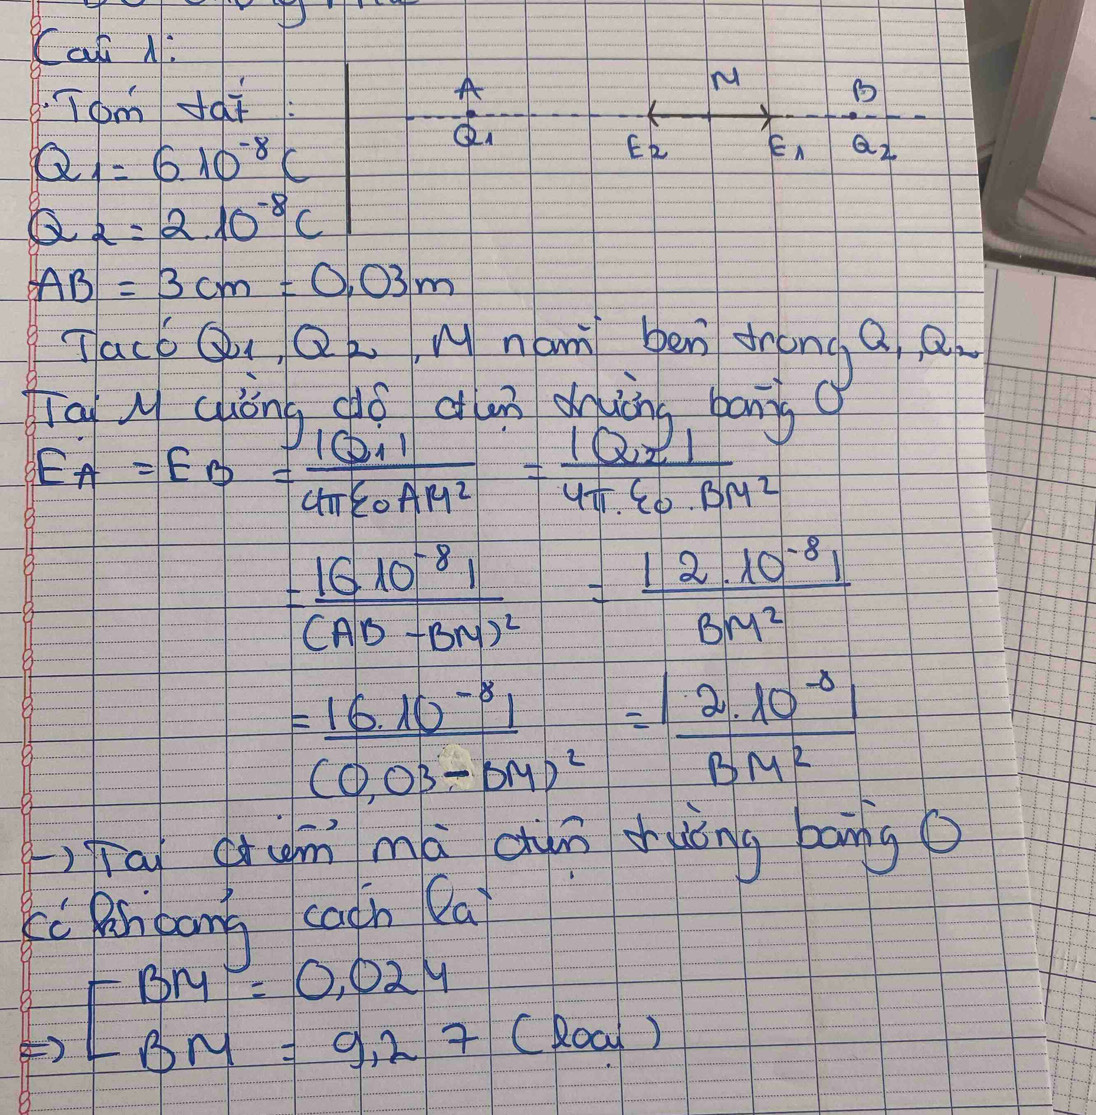 Câu 1:
Tóm tắt :
Q1 = 6.10^-8 C
Q2 = 2.10^-8 C
A M B
Q1 E2 E1 Q2
AB = 3 cm = 0,03m
Ta có Q1, Q2, M nằm bên trong Q1, Q2
Tại M cường độ điện trường bằng 0
EA = EB = |Q1| / 4πε0 AM² = |Q2| / 4π.ε0.BM²
= |6.10^-8| / (AB - BM)² = |2.10^-8| / BM²
= |6.10^-8| / (0,03 - BM)² = |2.10^-8| / BM²
-> Tại điểm mà điện trường bằng 0
có khoảng cách là
BM = 0,024
=> BM = 9,27 (loại)